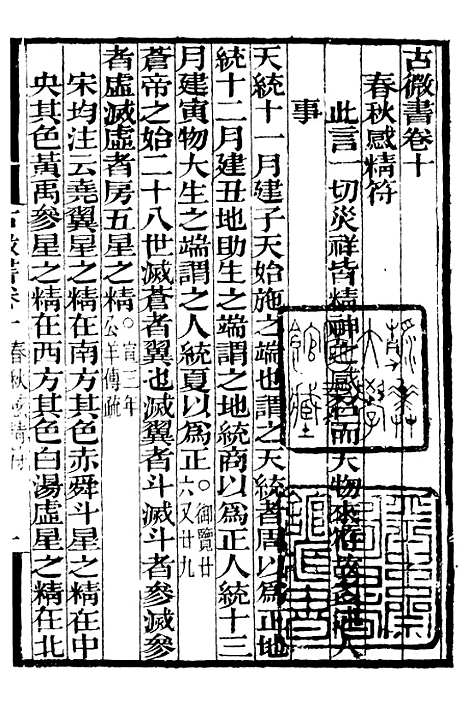 古微書卷十
春秋感精符
此言一切災祥皆精神之感召而天物來符故多述人
事
天統十一月建子天始施之端也謂之天統者周以爲正地
統十二月建丑地助生之端謂之地統商以爲正人統十三
月建寅物大生之端謂之人統夏以爲正。御覽廿六又廿九
蒼帝之始二十八世滅蒼者翼也滅翼者斗滅斗者參滅參
者虛滅虛者房五星之精。宣三年公羊傳疏
宋均注云堯翼星之精在南方其色赤舜斗星之精在中
央其色黃禹參星之精在西方其色白湯虛星之精在北
古微書卷十 春秋感精符 一